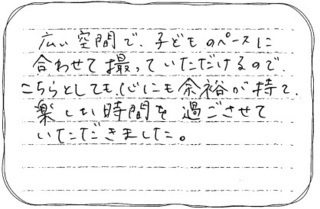 広い空間で、子どものペースに
合わせて撮っていただけるので、
こちらとしても、心にも余裕が持て、
楽しい時間を過ごさせて
いただきました。